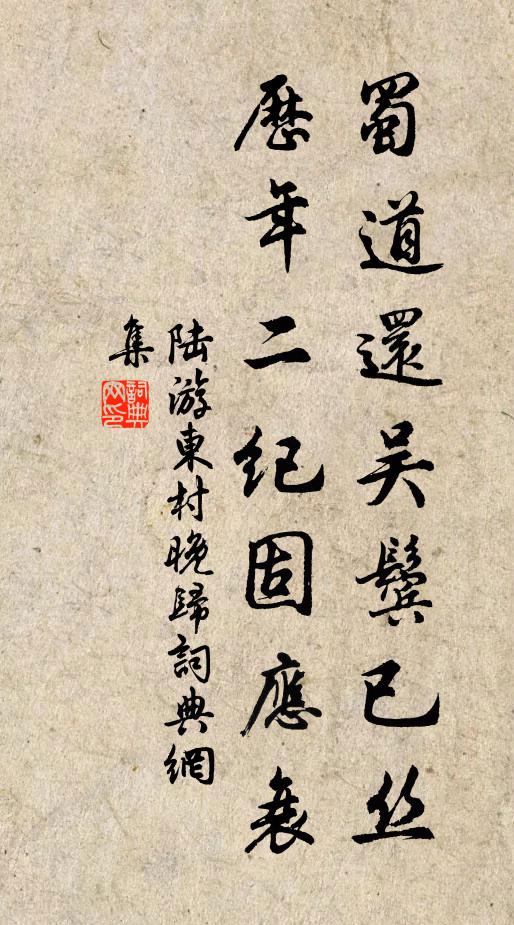 蜀道還吴鬓已丝
歷年二紀固應衰
陆游東村晚歸詞典網
集
詞典
网印